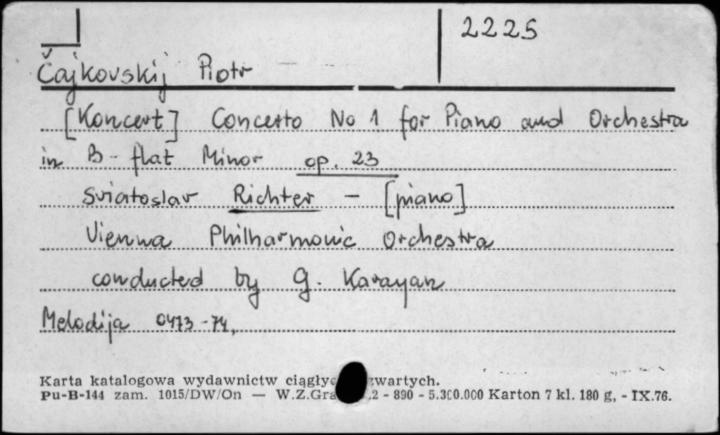 2225
Čajkovskij Piotr
[Koncert] Concerto No 1 for Piano and Orchestra
in B-flat Minor op. 23
Sviatoslav Richter - [piano]
Vienna Philharmonic Orchestra
conducted by G. Karayan
Melodija 0473-74,
Karta katalogowa wydawnictw zwartych.
Pu-B-144 zam. 1015/DW/On — W.Z.Gra 2 - 890 - 5.300.000 Karton 7 kl. 180 g, - IX.76.